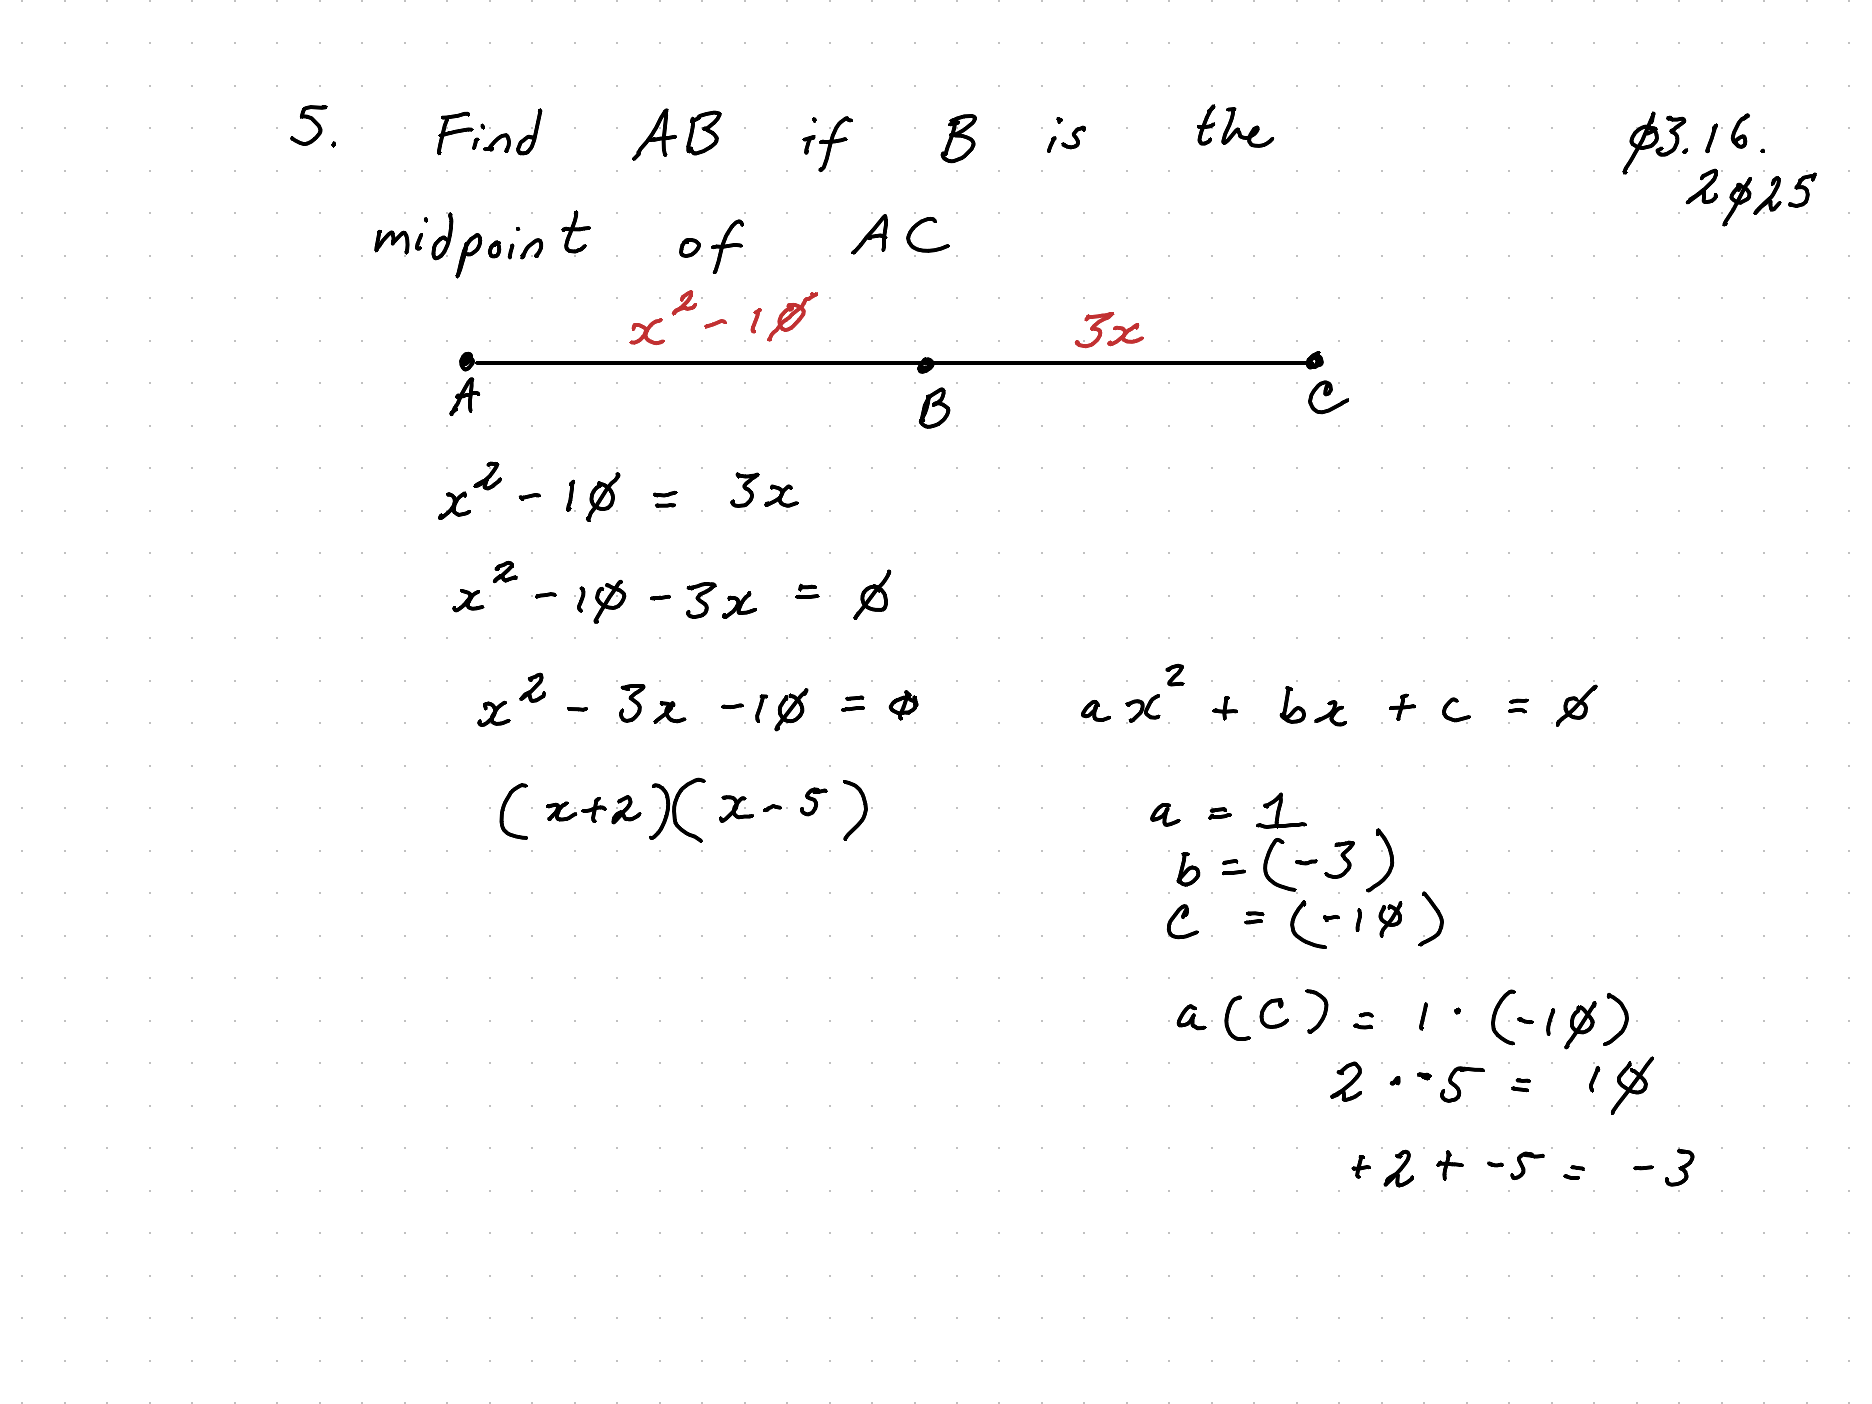 5. Find AB if B is the
midpoint of AC
φ3.16.
2φ25
x² - 1φ
3x
A
B
C
x² - 1φ = 3x
x² - 1φ - 3x = φ
x² - 3x - 1φ = φ
ax² + bx + c = φ
(x+2)(x-5)
a = 1
b = (-3)
c = (-1φ)
a(c) = 1 · (-1φ)
2 · -5 = 1φ
+2 + -5 = -3